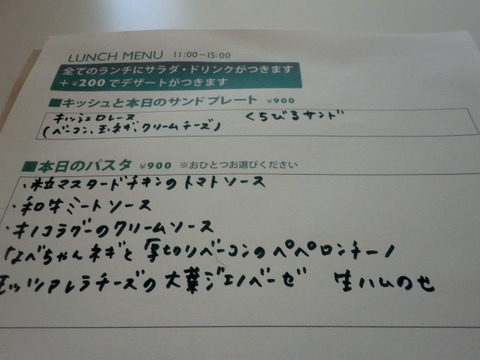 LUNCH MENU 11:00~15:00
全てのランチにサラダ・ドリンクがつきます
+¥200でデザートがつきます
■キッシュと本日のサンドプレート ¥900
キッシュロレーヌ くちびるサンド
(ベーコン、玉ネギ、クリームチーズ)
■本日のパスタ ¥900 ※おひとつお選びください
・粒マスタードチキンのトマトソース
・和牛ミートソース
・キノコラグーのクリームソース
なべちゃんネギと厚切りベーコンのペペロンチーノ
モッツァレラチーズの大葉ジェノベーゼ 生ハムのせ